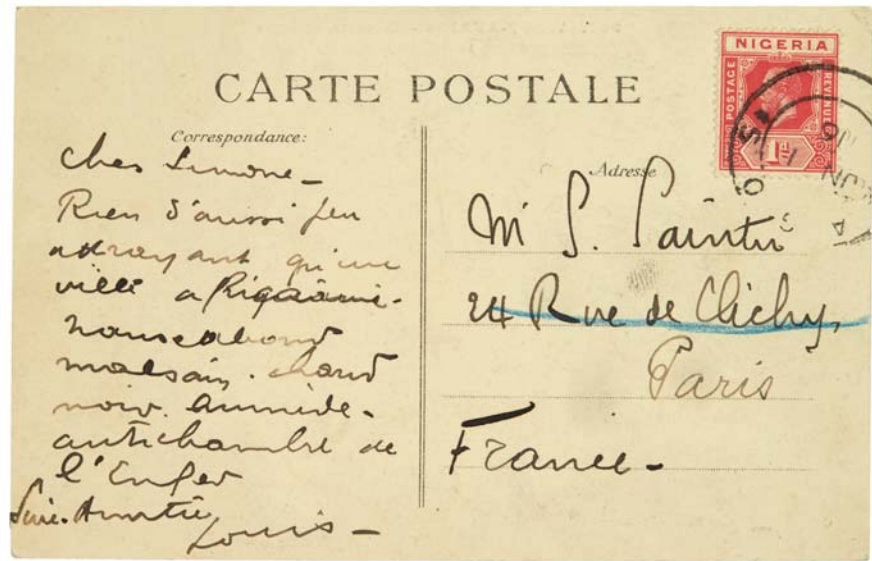 CARTE POSTALE
Correspondance:
Cher Simone -
Rien d'aussi peu
attrayant qu'une
ville
nauseabond
malsain. chaud
noir. humide -
antichambre de
l'Enfer
Amitié
Louis -
NIGERIA
POSTAGE
REVENUE
1D
Adresse
M S. Saintu
24 Rue de Clichy,
Paris
France -